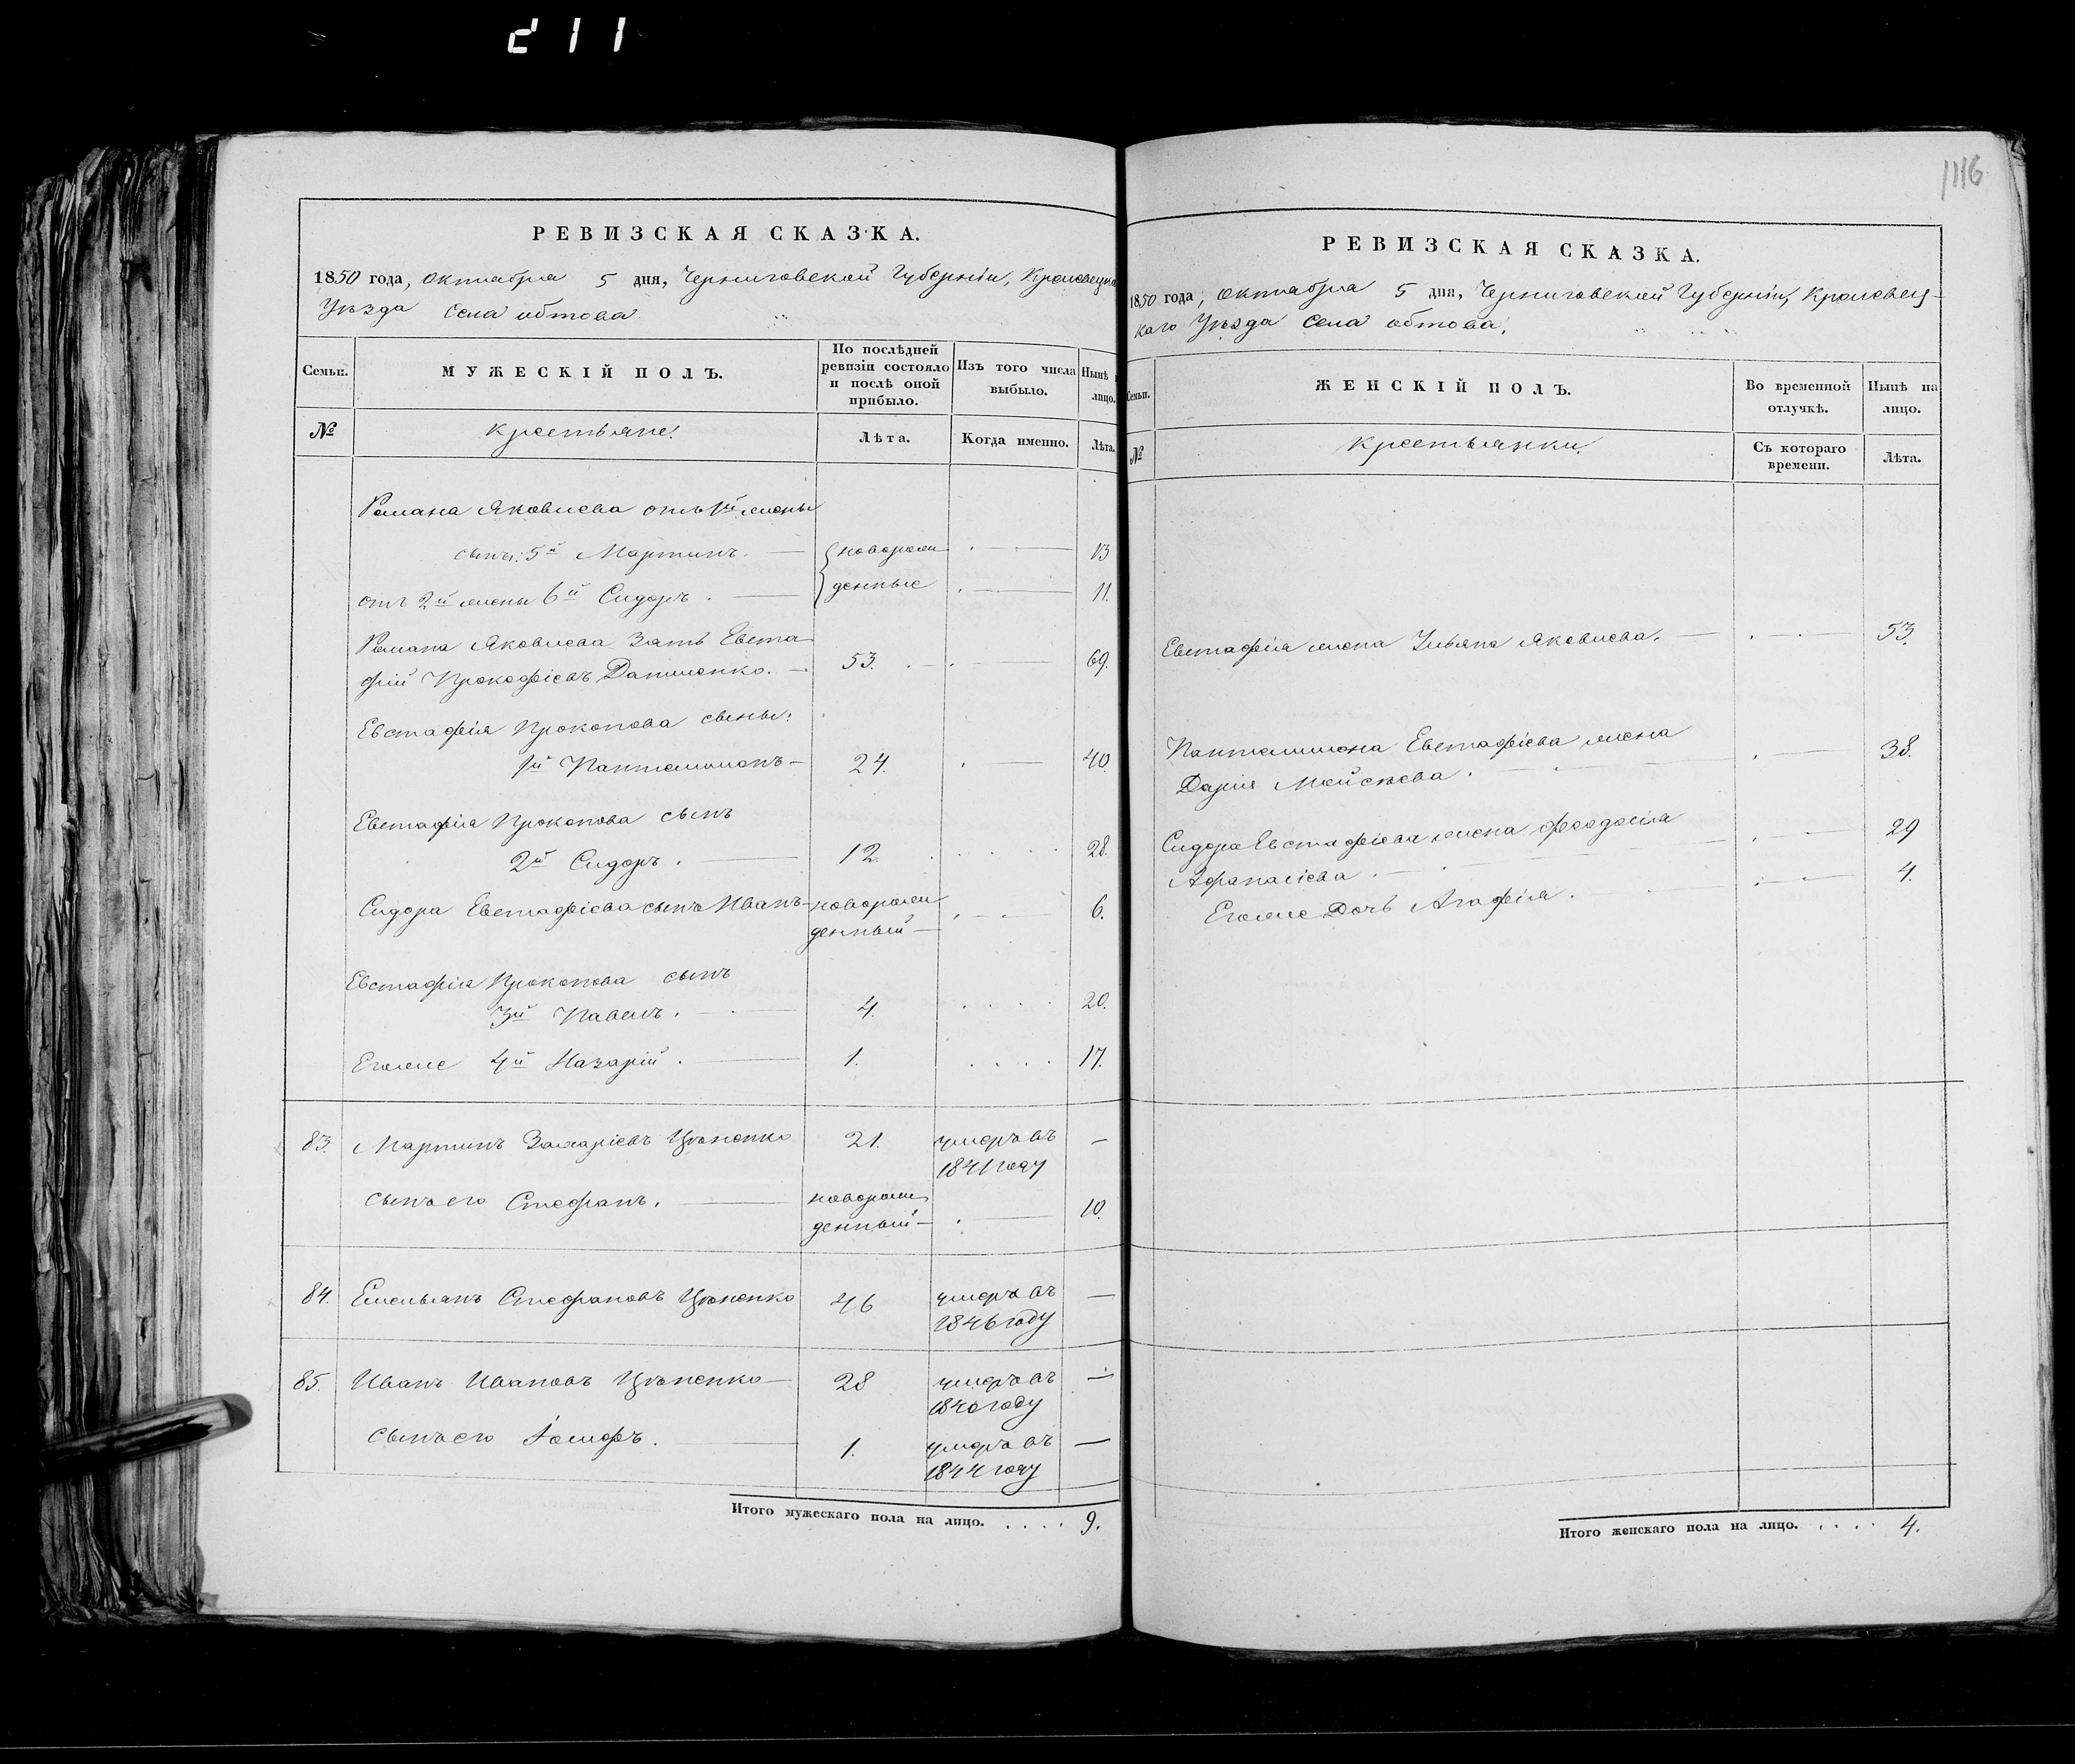 211
1116
РЕВИЗСКАЯ СКАЗКА.
1850 года, Октября 5 дня, Черниговской Губерніи, Кролевецка
Уѣзда Села обтова
Семьи.
МУЖЕСКІЙ ПОЛЪ.
По послѣдней ревизіи состояло и послѣ оной прибыло.
Изъ того числа выбыло.
Нынѣ н лицо.
№
крестьяне.
Лѣта.
Когда именно.
Лѣта.
Романа Яковлева отъ 1й жены
сынъ: 5й Мартинъ. новорож 13
отъ 2й жены 6й Сидоръ. денные 11.
Романа Яковлева Зять Евста
фій Прокофіевъ Даниленко. 53. 69.
Евстафія Прокопова сыны:
1й Пантелимонъ 24. 40.
Евстафія Прокопова сынъ
2й Сидоръ. 12. 28.
Сидора Евстафіева сынъ Иванъ новорож 6.
денный
Евстафія Прокопова сынъ
3й Павелъ. 4. 20.
Егоже 4й Назарій. 1. 17.
83. Мартинъ Захаріевъ Цѣпенко 21. умеръ въ —
1841 году
сынъ его Стефанъ. новорож 10.
денный
84. Емельянъ Стефановъ Цѣпенко 46 умеръ въ —
1846 году
85. Иванъ Ивановъ Цѣпенко 28 умеръ въ —
1840 году
сынъ его Іосифъ. 1. умеръ въ —
1844 году
Итого мужескаго пола на лицо. . . . . 9.
РЕВИЗСКАЯ СКАЗКА.
1850 года, Октября 5 дня, Черниговской Губерніи, Кролевец-
каго Уѣзда Села обтова,
Семьи.
ЖЕНСКІЙ ПОЛЪ.
Во временной отлучкѣ.
Нынѣ на лицо.
№
крестьянки.
Съ котораго времени.
Лѣта.
Евстафія жена Ульяна Яковлева. 53.
Пантелимона Евстафіева жена
Дарія Мойсѣева. 38.
Сидора Евстафіева жена Феодосія 29
Афанасіева.
Егоже Дочь Агафія. 4.
Итого женскаго пола на лицо. . . . . 4.